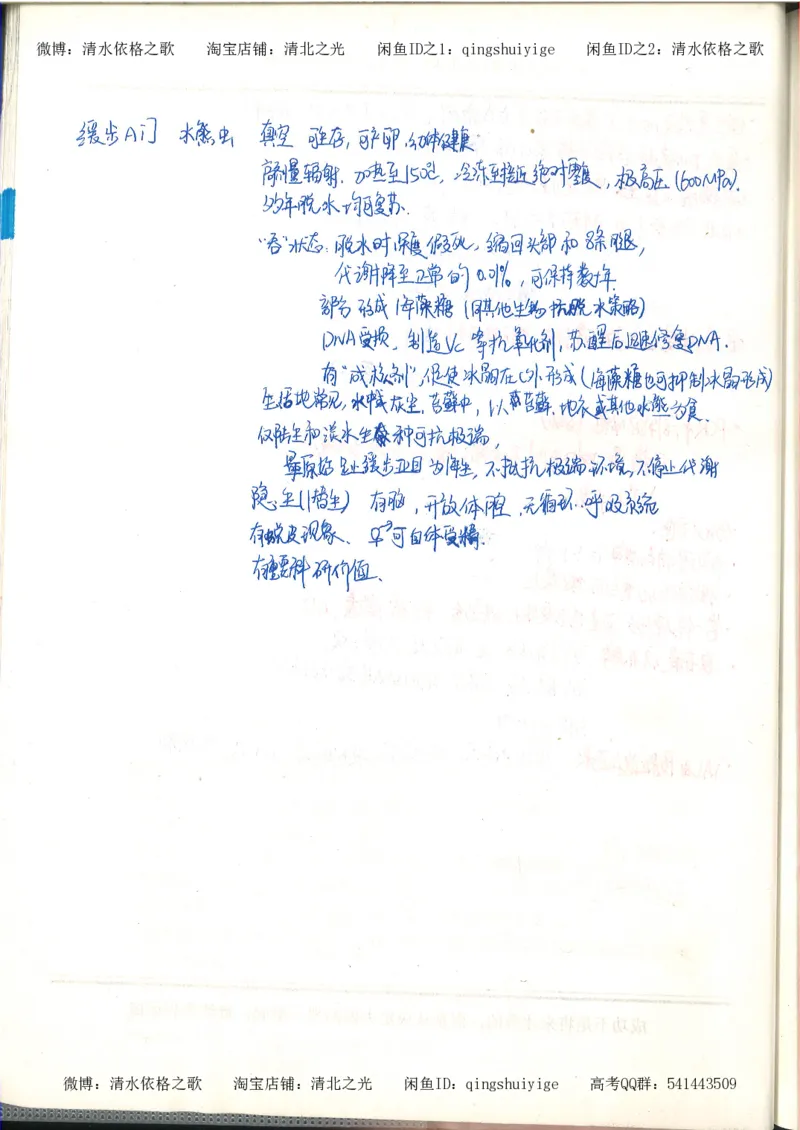 微博：清水依格之歌 淘宝店铺：清北之光 闲鱼ID之1：qingshuiyige 闲鱼ID之2：清水依格之歌
缓步A门 水熊虫 真空 可生存，可产卵，幼体健康
高剂量辐射．加热至150℃，冷冻至接近绝对零度，极高压（600MPa）．
脱水均可复苏．
状态：脱水时深度假死，缩回头部和8条腿，
代谢降至正常的0.01%，可保持数年．
部分形成海藻糖（同其他生物抗脱水策略）
DNA受损，制造Vc等抗氧化剂，苏醒后迅速修复DNA．
有“成核剂”，促使冰晶在C外形成（海藻糖也可抑制冰晶形成）
生活地常见，灰尘．苔藓中，以苔藓．地衣或其他水熊为食．
仅陆生和淡水生种可抗极端，
最原始缓步亚目为海生，不抵抗极端环境，不停止代谢
隐生 有脑，开放体腔，无循环．呼吸系统
有蜕皮现象、可自体受精．
有重要科研价值．
微博：清水依格之歌 淘宝店铺：清北之光 闲鱼ID：qingshuiyige 高考QQ群：541443509